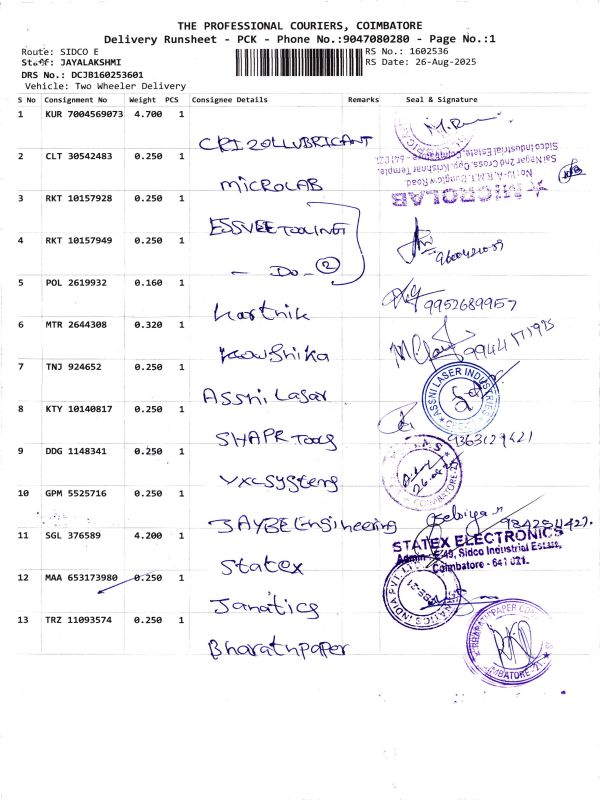 THE PROFESSIONAL COURIERS, COIMBATORE
Delivery Runsheet - PCK - Phone No.:9047080280 - Page No.:1
Route: SIDCO E
RS No.: 1602536
Staff: JAYALAKSHMI
RS Date: 26-Aug-2025
DRS No.: DCJB160253601
Vehicle: Two Wheeler Delivery
S No Consignment No Weight PCS Consignee Details Remarks Seal & Signature
1 KUR 7004569073 4.700 1
CRIZOLLUBRICANT
2 CLT 30542483 0.250 1
MICROLAB
MICROLAB
No: 10-A, R.M.T. Bunglow Road
Sai Nagar 2nd Cross, Opp. Krishnar Temple,
Sidco Industrial Estate, Coimbatore - 641 021.
3 RKT 10157928 0.250 1
ESSVEE TOOLING
4 RKT 10157949 0.250 1
- Do - 2
9600421059
5 POL 2619932 0.160 1
Karthik
9952689957
6 MTR 2644308 0.320 1
Koushika
9944171925
7 TNJ 924652 0.250 1
Assni Lasar
ASSNI LASER INDUSTRIES
8 KTY 10140817 0.250 1
SHAPR Tools
9363129421
9 DDG 1148341 0.250 1
VXL Systems
10 GPM 5525716 0.250 1
JAYBE Engineering
11 SGL 376589 4.200 1
Statex
STATEX ELECTRONICS
Admin E-49, Sidco Industrial Estate,
Coimbatore - 641 021.
12 MAA 653173980 0.250 1
Janatics
JANATICS INDIA PVT. LTD
13 TRZ 11093574 0.250 1
Bharathpaper